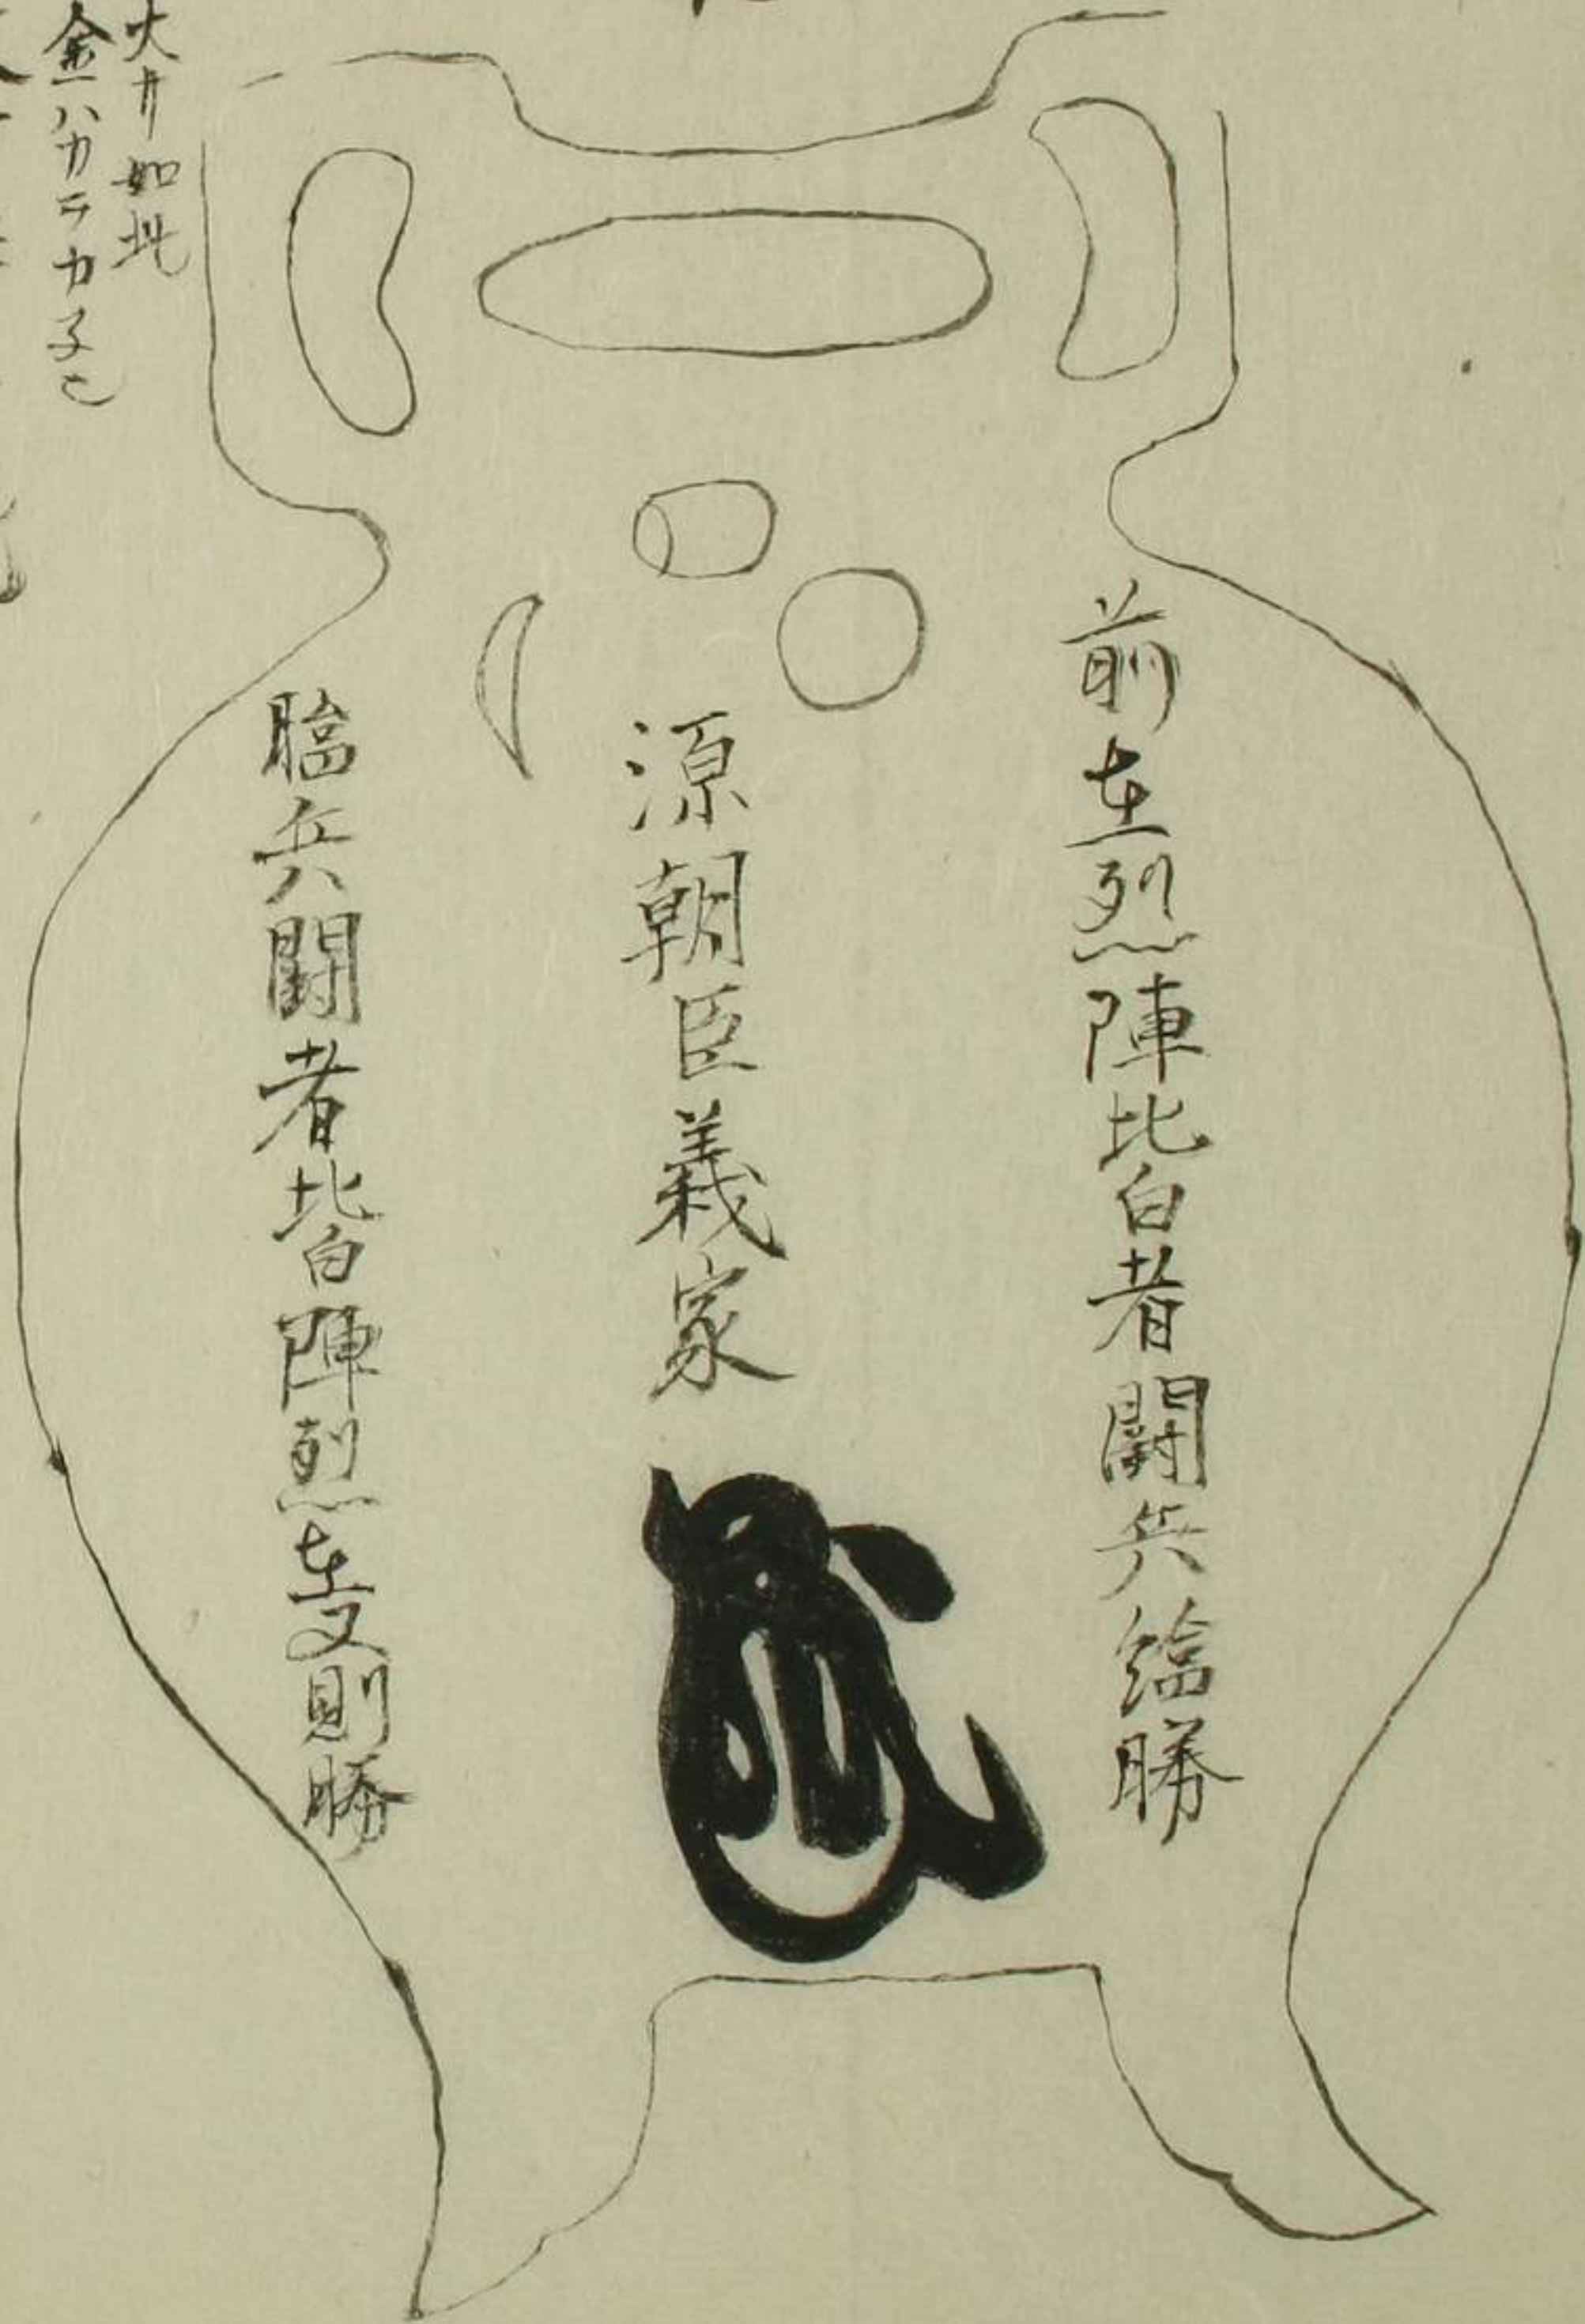 前在烈陣皆者闘兵臨勝
源朝臣義家
臨兵闘者皆陣烈在前又則勝
大サ如此
金ハカラカ子也